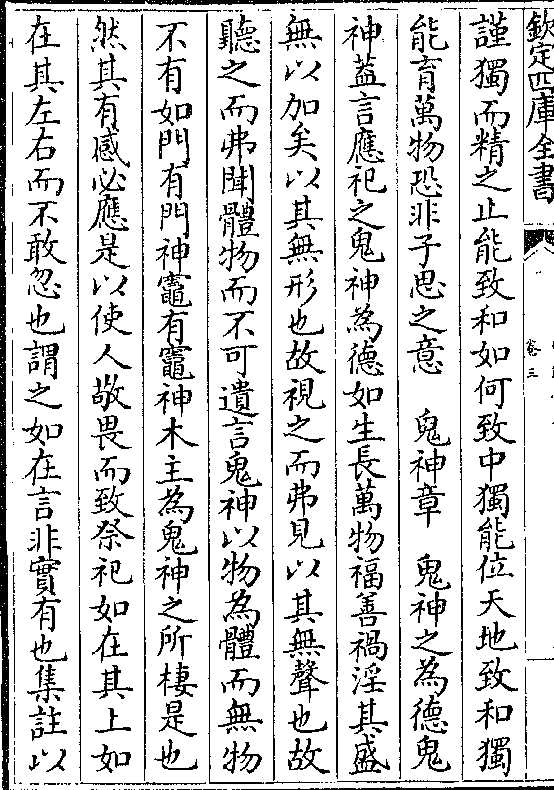 欽定四庫全書
卷三
謹獨而精之止能致和如何致中獨能位天地致和獨
能育萬物恐非子思之意　鬼神章　鬼神之為德鬼
神蓋言應祀之鬼神為德如生長萬物福善禍淫其盛
無以加矣以其無形也故視之而弗見以其無聲也故
聽之而弗聞體物而不可遺言鬼神以物為體而無物
不有如門有門神竈有竈神木主為鬼神之所棲是也
然其有感必應是以使人敬畏而致祭祀如在其上如
在其左右而不敢忽也謂之如在言非實有也集註以